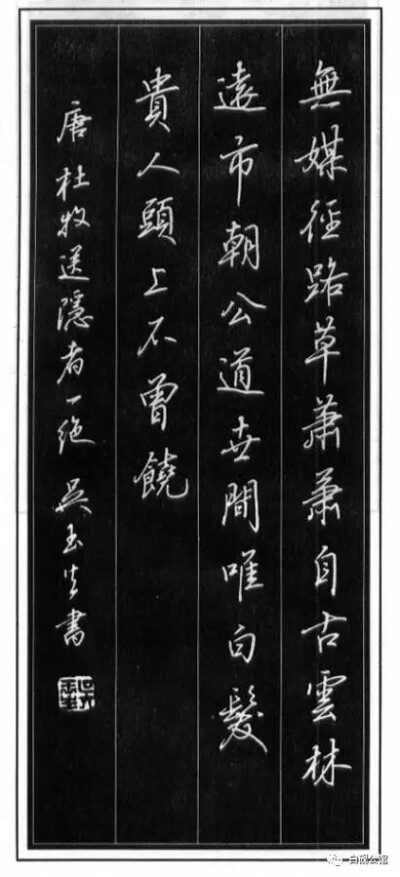 無媒徑路草蕭蕭自古雲林
遠市朝公道世間唯白髮
貴人頭上不曾饒
唐杜牧送隱者一絕 吳玉生書